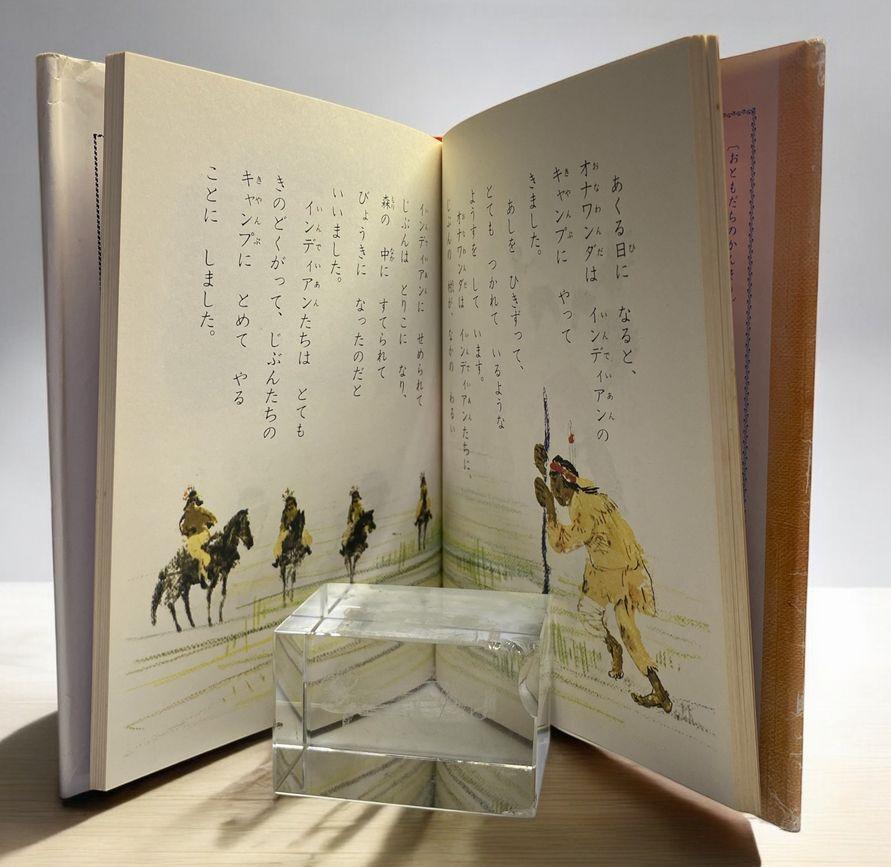 〔おともだちのかん
あくる日に なると、
オナワンダは インディアンの
キャンプに やって
きました。
あしを ひきずって、
とても つかれて いるような
ようすを して います。
オナワンダは インディアンたちに、
じぶんの が、なかの わるい
インディアンに せめられて
じぶんは とりこに なり、
森の 中に すてられて
びょうきに なったのだと
いいました。
インディアンたちは とても
きのどくがって、じぶんたちの
キャンプに とめて やる
ことに しました。